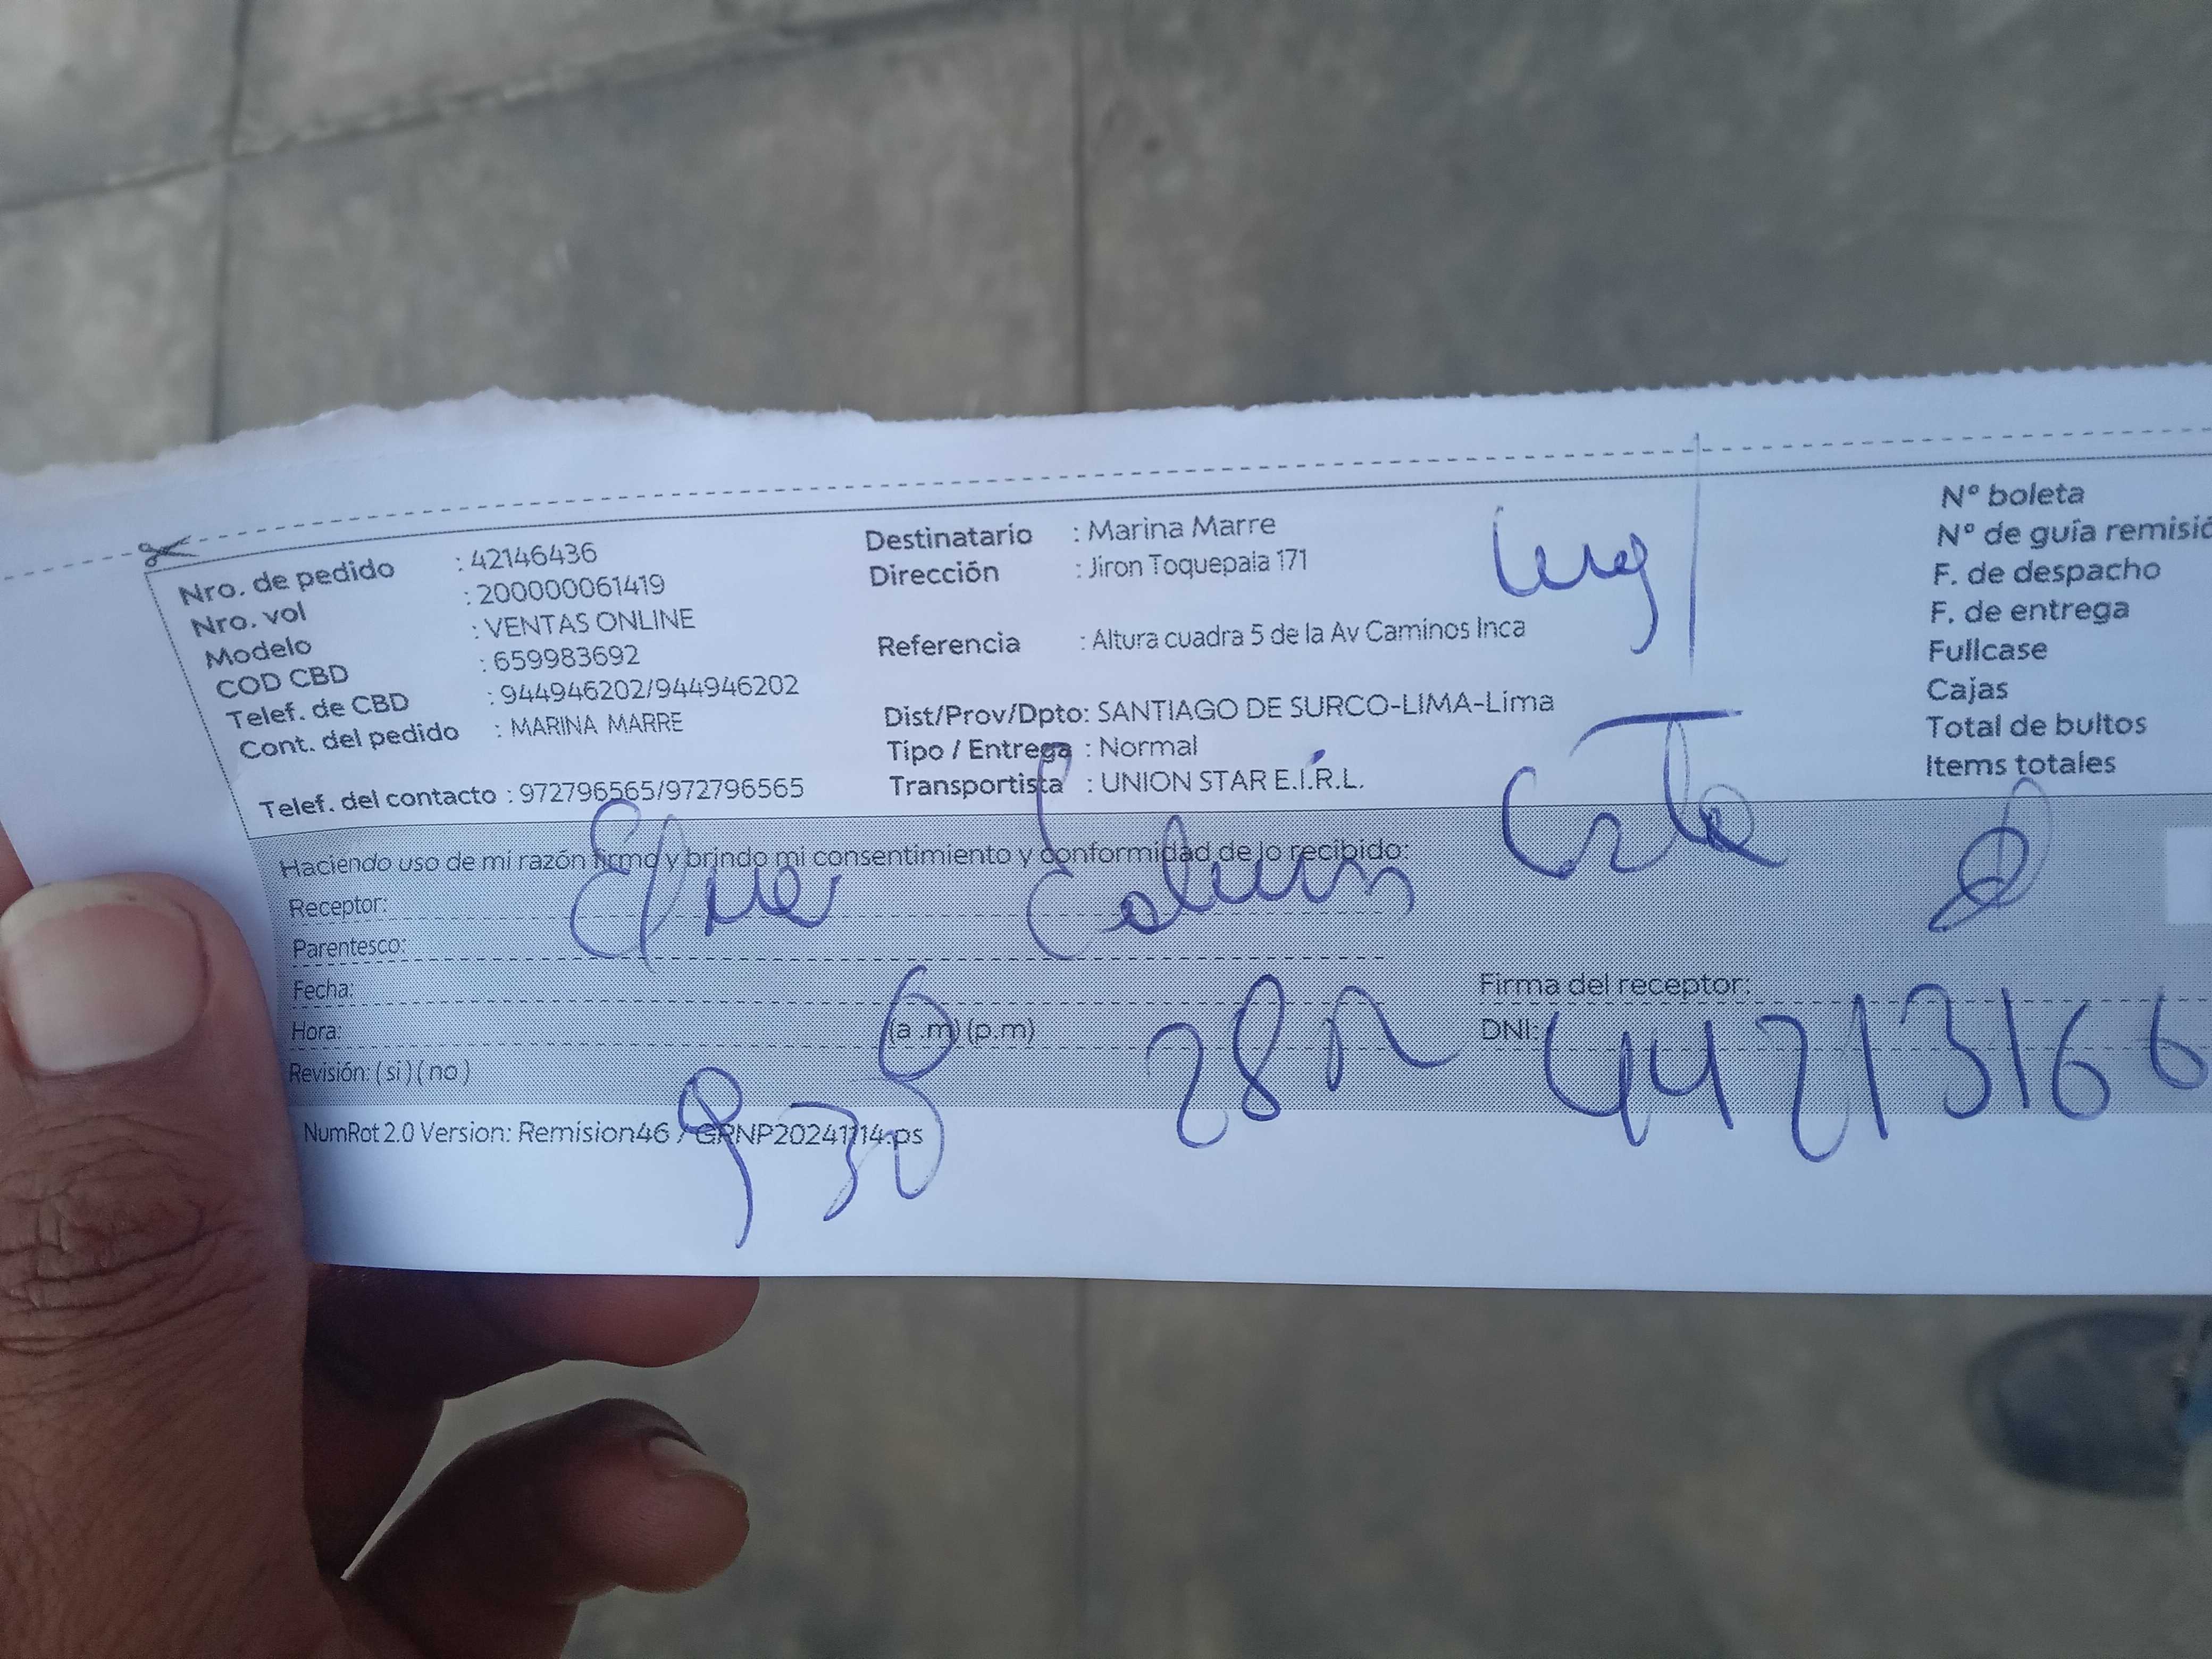 Nro. de pedido : 42146436
Nro. vol : 200000061419
Modelo : VENTAS ONLINE
COD CBD : 659983692
Telef. de CBD : 944946202/944946202
Cont. del pedido : MARINA MARRE
Telef. del contacto : 972796565/972796565
Destinatario : Marina Marre
Dirección : Jiron Toquepala 171
Referencia : Altura cuadra 5 de la Av Caminos Inca
Dist/Prov/Dpto: SANTIAGO DE SURCO-LIMA-Lima
Tipo / Entrega : Normal
Transportista : UNION STAR E.I.R.L.
Nº boleta
Nº de guía remisió
F. de despacho
F. de entrega
Fullcase
Cajas
Total de bultos
Items totales
Haciendo uso de mi razón firmo y brindo mi consentimiento y conformidad de lo recibido:
Receptor:
Parentesco:
Fecha:
Hora: (a .m) (p.m)
Revisión: ( si ) ( no )
Firma del receptor:
DNI: 44213166
9 30
NumRot 2.0 Version: Remision46 / GRNP20241114.ps